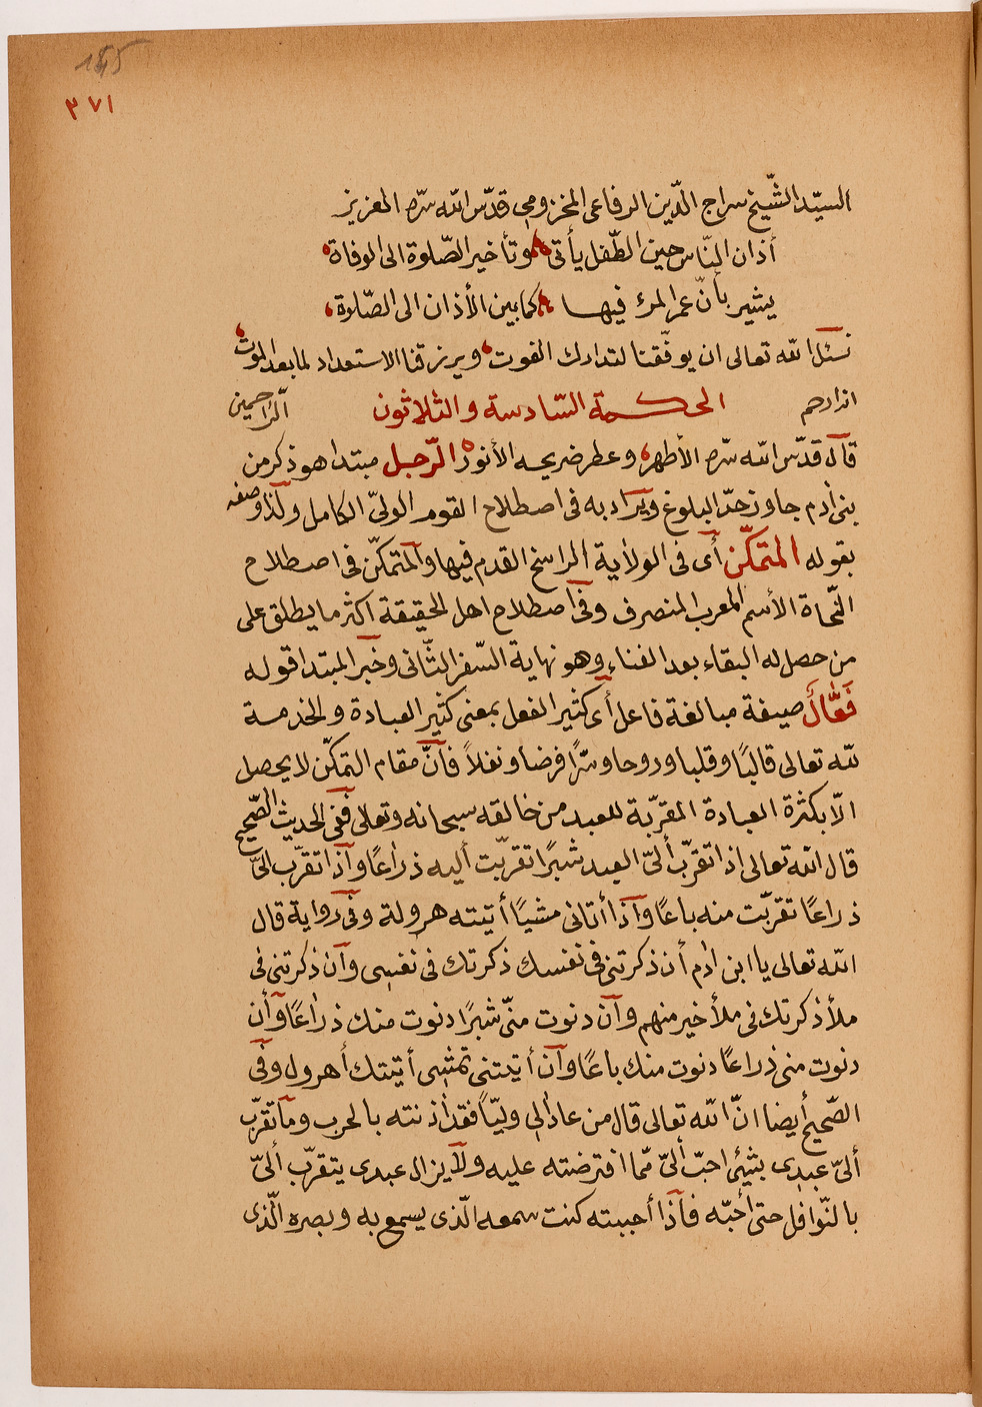 185
٣٧١
السيّد الشّيخ سراج الدّين الرفاعى المخزومى قدّس الله سرّه العزيز
أذان النّاس حين الطّفل يأتى وتأخير الصّلوة الى الوفاة
يشير بأنّ عمر المرء فيها كما بين الأذان الى الصّلوة
نسئل الله تعالى ان يوفّقنا لتدارك الفوت ويرزقنا الاستعداد لما بعد الموت
انه ارحم الرّاحمين
الحكمة السّادسة والثلاثون
قال قدّس الله سرّه الأطهر وعطر ضريحه الأنور الرّجل مبتدا هو ذكر من
بنى أدم جاوز حدّ البلوغ ويراد به فى اصطلاح القوم الولىّ الكامل ولذا وصفه
بقوله المتمكّن أى فى الولأية الراسخ القدم فيها والمتمكّن فى اصطلاح
النّحاة الأسم المعرب المنصرف وفى اصطلاح اهل الحقيقة اكثر ما يطلق على
من حصل له البقاء بعد الفناء وهو نهاية السّفر الثّانى وخبر المبتدا قوله
فَعَّالٌ صيغة مبالغة فاعل أى كثير الفعل بمعنى كثير العبادة والخدمة
لله تعالى قالبًا وقلبا وروحا وسرًّا فرضا ونفلاً فأنّ مقام التمكّن لا يحصل
الّا بكثرة العبادة المقرّبة للعبد من خالقه سبحانه وتعالى ففى الحديث الصّحيح
قال الله تعالى اذا تقرّب ألىّ العبد شبرًا تقربّت أليه ذراعًا وأذا تقرّب الىّ
ذراعًا تقربّت منه باعًا وأذا أتانى مشيًا أتيته هرولة وفى رواية قال
الله تعالى يا ابن ادم أن ذكرتنى فى نفسك ذكرتك فى نفسى وأن ذكرتنى فى
ملأ ذكرتك فى ملأ خير منهم وأن دنوت منّى شبرًا دنوت منك ذراعًا وأن
دنوت منى ذراعًا دنوت منك باعًا وأن أتيتنى تمشى أتيتك أهرول وفى
الصّحيح أيضا انّ الله تعالى قال من عاد لى وليّاً فقد أذنته بالحرب وما تقرّب
ألىّ عبدى بشيئ احبّ ألىّ ممّا افترضته عليه ولا يزال عبدى يتقرّب ألىّ
بالنّوافل حتى أحبّه فأذا أحببته كنت سمعه الّذى يسمع به وبصره الّذى